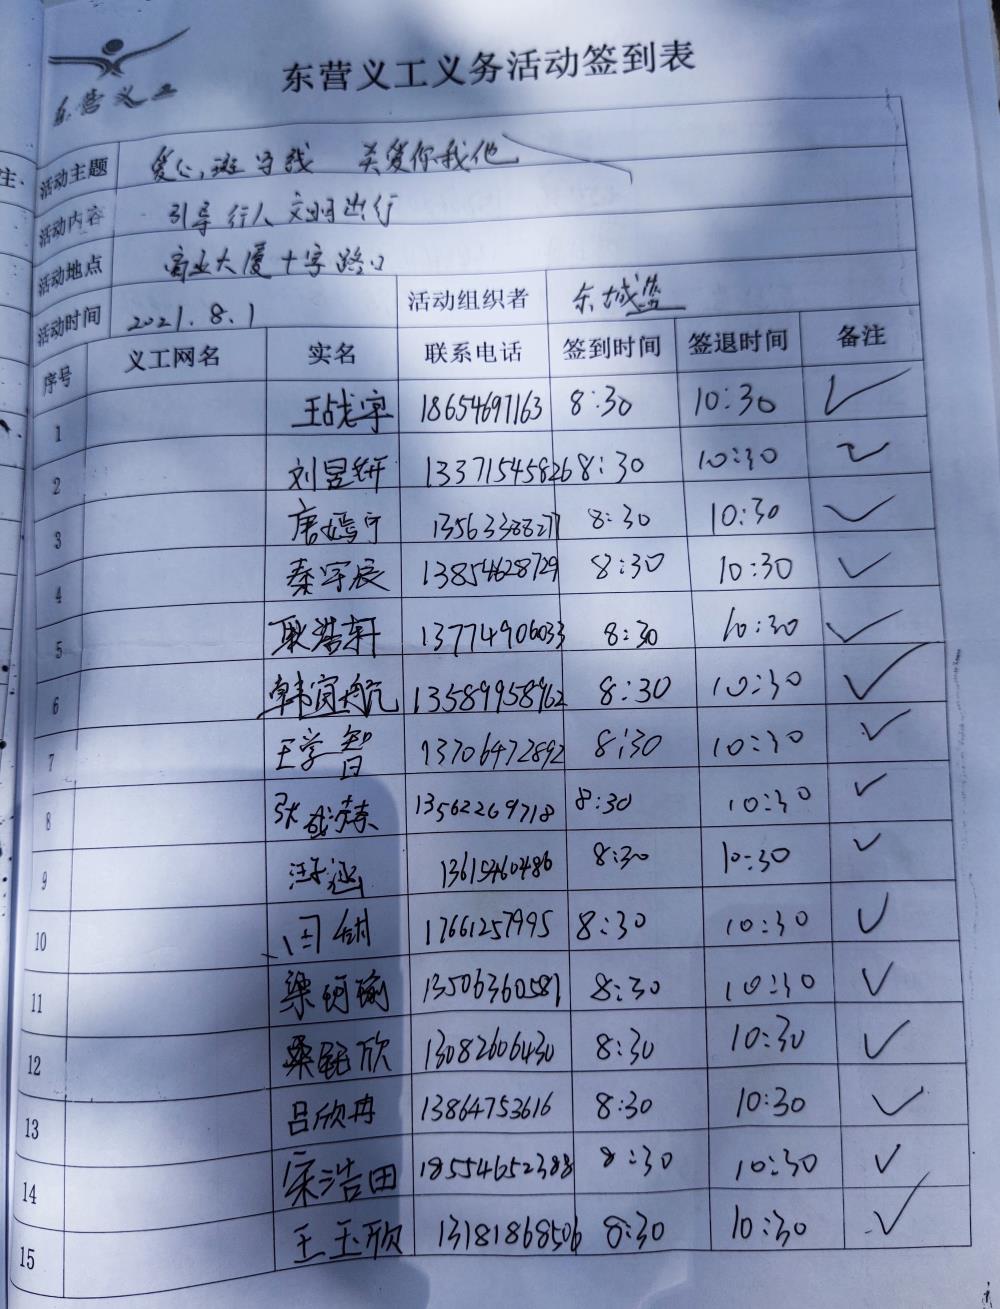 东营义工
东营义工义务活动签到表
活动主题 爱心斑守线 关爱你我他
活动内容 引导行人文明出行
活动地点 商业大厦十字路口
活动时间 2021.8.1 活动组织者 东城
序号 义工网名 实名 联系电话 签到时间 签退时间 备注
1 王战宇 18654697163 8:30 10:30 ✓
2 刘昱妍 13371545826 8:30 10:30 ✓
3 唐嫣宁 13563388277 8:30 10:30 ✓
4 秦宇辰 13854628729 8:30 10:30 ✓
5 耿浩轩 13774906033 8:30 10:30 ✓
6 韩航 13589958962 8:30 10:30 ✓
7 王学智 13706472892 8:30 10:30 ✓
8 张 13562269718 8:30 10:30 ✓
9 涵 13615460486 8:30 10:30 ✓
10 17661257995 8:30 10:30 ✓
11 梁瑜 13506360581 8:30 10:30 ✓
12 桑欣 13082606430 8:30 10:30 ✓
13 吕欣冉 13864753616 8:30 10:30 ✓
14 宋浩田 18554652388 8:30 10:30 ✓
15 王玉欣 13181868506 8:30 10:30 ✓